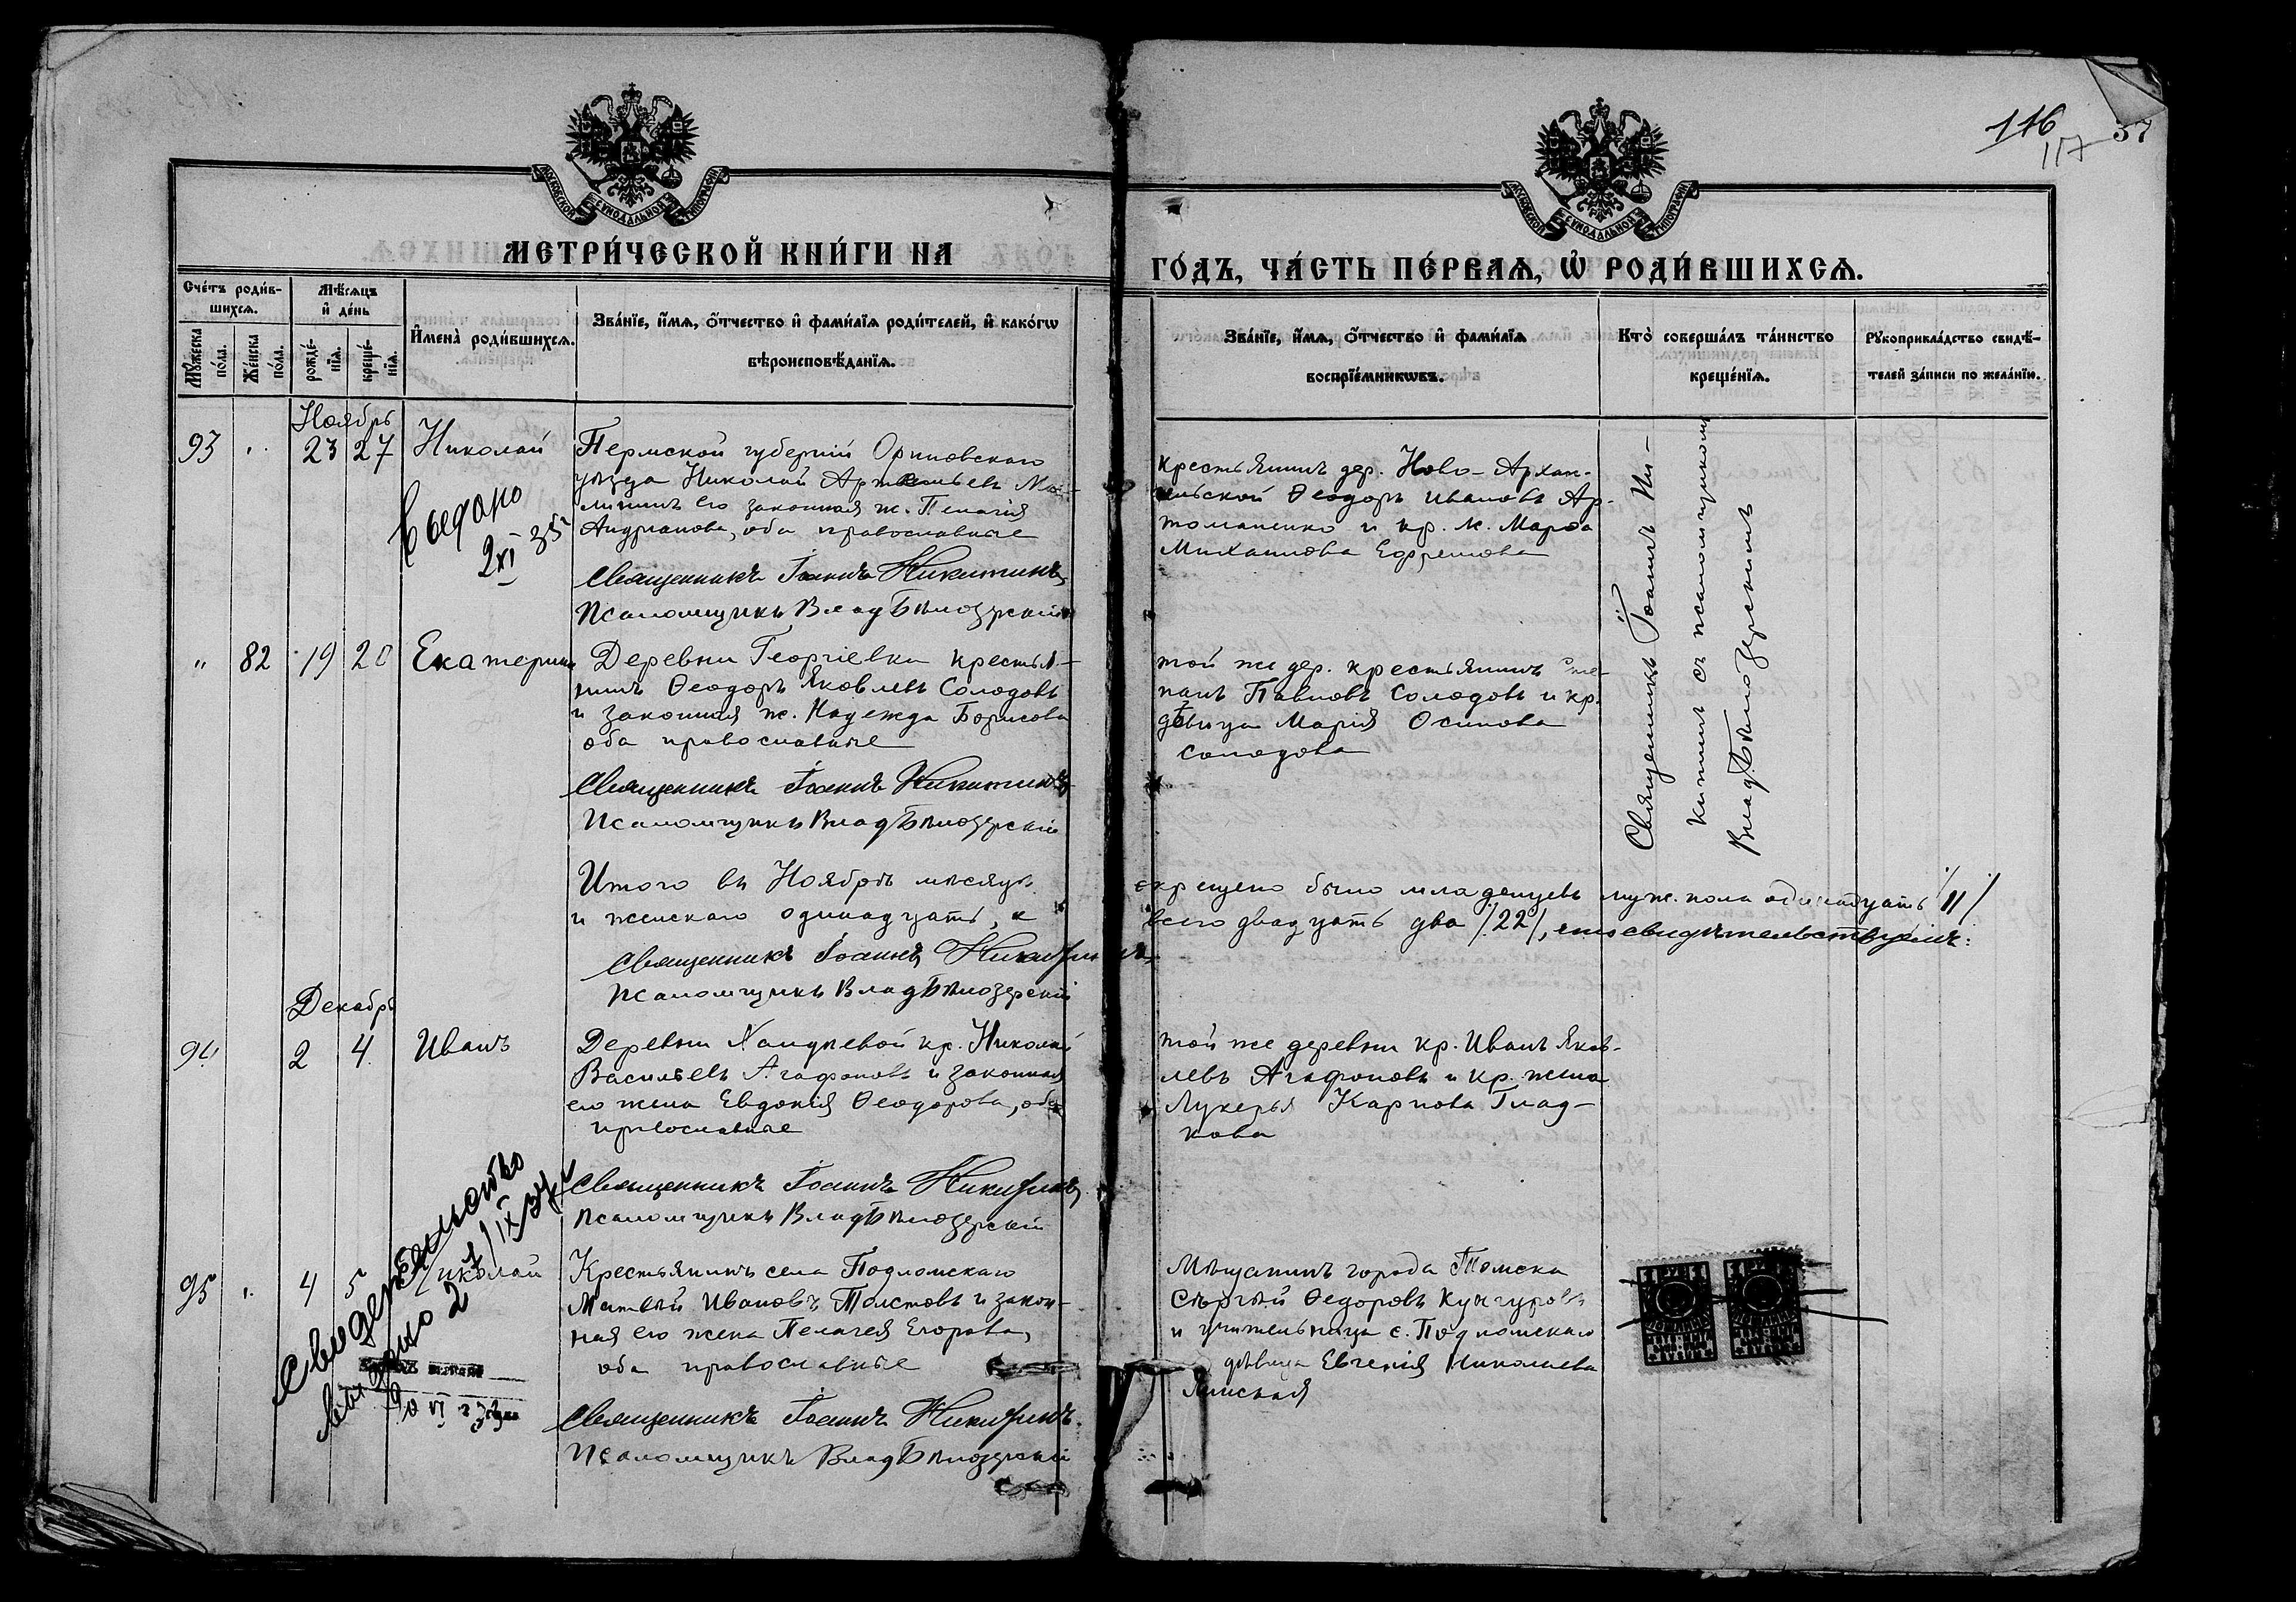 116
117
37
МОСКОВСКОЙ СѴНОДАЛЬНОЙ ТИПОГРАФІИ
МОСКОВСКОЙ СѴНОДАЛЬНОЙ ТИПОГРАФІИ
МЕТРИ́ЧЕСКОЙ КНИ́ГИ НА
ГО́ДЪ, ЧА́СТЬ ПЕ́РВАѦ, Ѽ РОДИ́ВШИХСѦ.
Сче́тъ роди́в-
шихсѧ.
Мꙋ́жеска по́ла.
Же́нска по́ла.
Мѣ́сѧцъ
и҆ де́нь
рожде́-
нїѧ.
креще́-
нїѧ.
И҆мена̀ роди́вшихсѧ.
Зва́нїе, и҆́мѧ, ѻ҆́тчество и҆ фами́лїѧ роди́телей, и҆ како́гѡ
вѣроисповѣ́данїѧ.
Зва́нїе, и҆́мѧ, ѻ҆́тчество и҆ фами́лїѧ
воспрїе́мникѡвъ.
Кто̀ соверша́лъ та́инство
креще́нїѧ.
Рꙋкоприкла́дство свидѣ́-
телей за́писи по жела́нїю.
Ноябрь
93 23 27 Николай
Пермской губерніи
уѣзда Николай
его законная ж. Пелагія
Андрианова, оба православные
Священникъ Іоаннъ Никитинъ
Псаломщикъ Влад Бѣлозерскій
крестьянинъ дер. Ново-Архан-
гельской Ѳеодоръ Ивановъ Ар-
томаненко и кр. ж. Марѳа
Михаилова Ефремова
Священникъ Іоаннъ Ни-
китинъ съ псаломщикомъ
Влад. Бѣлозерскимъ
Выдано
2 XI 35
" 82 19 20 Екатерина
Деревни Георгіевки крестья-
нинъ Ѳеодоръ Яковлевъ Солодовъ
и законная ж. Надежда Борисова
оба православные
Священникъ Іоаннъ Никитинъ
Псаломщикъ Влад Бѣлозерскій
той же дер. крестьянинъ Сте-
панъ Павловъ Солодовъ и кр.
дѣвица Марія Осипова
Солодова
Итого въ Ноябрѣ мѣсяцѣ
окрещено было младенцевъ муж. пола одинадцать /11/
и женскаго одинадцать, а
всего двадцать два /22/, что свидѣтельствуемъ:
Священникъ Іоаннъ Никитинъ
Псаломщикъ Влад Бѣлозерскій
Декабрь
94 2 4 Иванъ
Деревни Халдѣевой кр. Николай
Васильевъ Агафоновъ и законная
его жена Евдокія Ѳеодорова, оба
православные
Священникъ Іоаннъ Никитинъ
Псаломщикъ Влад Бѣлозерскій
той же деревни кр. Иванъ Яков-
левъ Агафоновъ и кр. жена
Лукерья Карпова Глад-
кова
Свидетельство
выдано
95 4 5 Николай
Крестьянинъ села Подломскаго
Матвѣй Ивановъ Толстовъ и закон-
ная его жена Пелагея Егорова,
оба православные
Священникъ Іоаннъ Никитинъ.
Псаломщикъ Влад Бѣлозерскій
Мѣщанинъ города Томска
Сергѣй Ѳедоровъ Кунгуровъ
и учительница с. Подломскаго
дѣвица Евгенія Николаева
Ямская